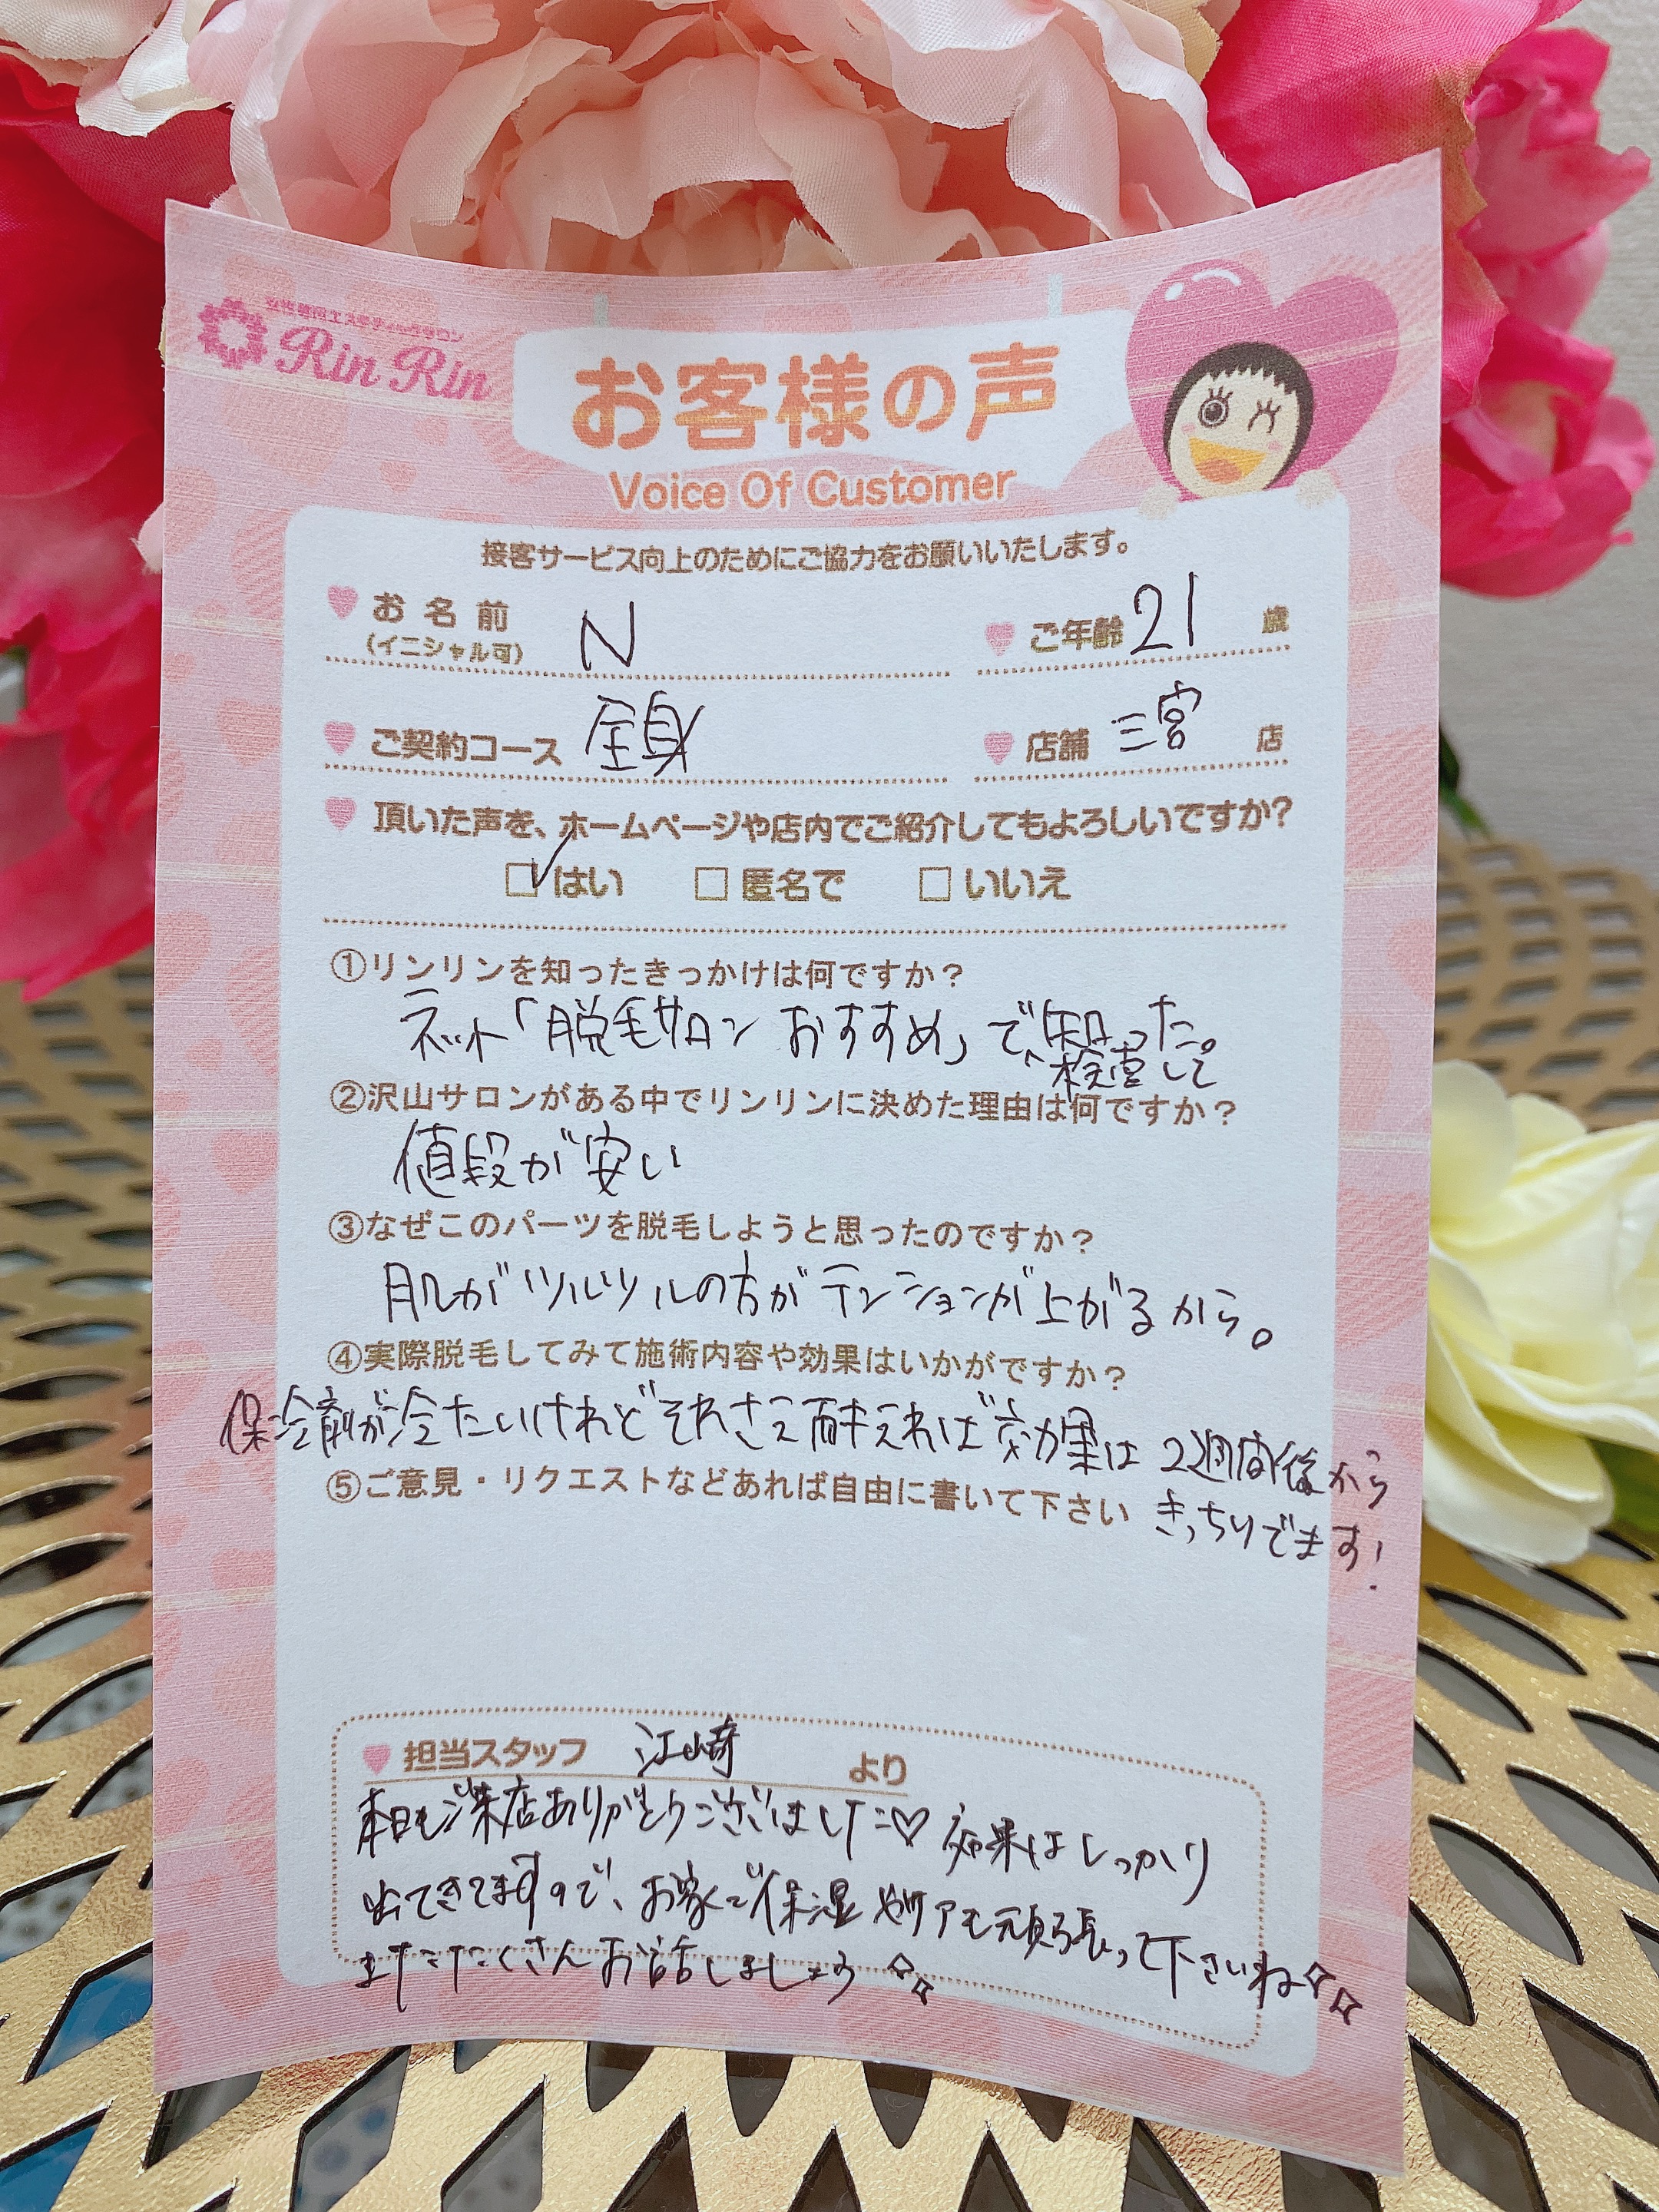 女性専門エステティックサロン
Rin Rin
お客様の声
Voice Of Customer
接客サービス向上のためにご協力をお願いいたします。
お名前 N ご年齢 21 歳
(イニシャル可)
ご契約コース 全身 店舗 三宮 店
頂いた声を、ホームページや店内でご紹介してもよろしいですか?
はい 匿名で いいえ
①リンリンを知ったきっかけは何ですか?
ネット「脱毛サロン おすすめ」で知った。
検索して
②沢山サロンがある中でリンリンに決めた理由は何ですか?
値段が安い
③なぜこのパーツを脱毛しようと思ったのですか?
肌がツルツルの方がテンションが上がるから。
④実際脱毛してみて施術内容や効果はいかがですか?
保冷剤が冷たいけれどそれさえ耐えれば効果は2週間後から
⑤ご意見・リクエストなどあれば自由に書いて下さい
きっちりでます!
担当スタッフ 江崎 より
本日もご来店ありがとうございました♡ 効果はしっかり
出てきてますので、お家で保湿ケアも頑張って下さいね
またたくさんお話しましょう